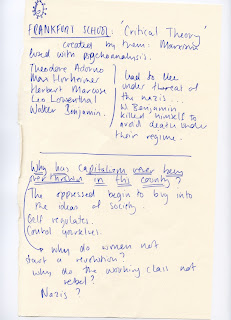 FRANKFORT SCHOOL: 'Critical Theory
created by them: Marxism
fused with psychoanalysis.
Theodore Adorno
Max Horkeimer
Herbert Marcuse
Leo Lowenthal
Walter Benjamin.
had to live
under threat of
the nazis...
W. Benjamin
killed himself to
avoid death under
their regime.
Why has capitalism never been
overthrown in this country?
The oppressed begin to buy into
the ideas of society.
Self regulates.
Control ourselves.
why do women not
start a revolution?
why do the working class not
rebel?
Nazis?